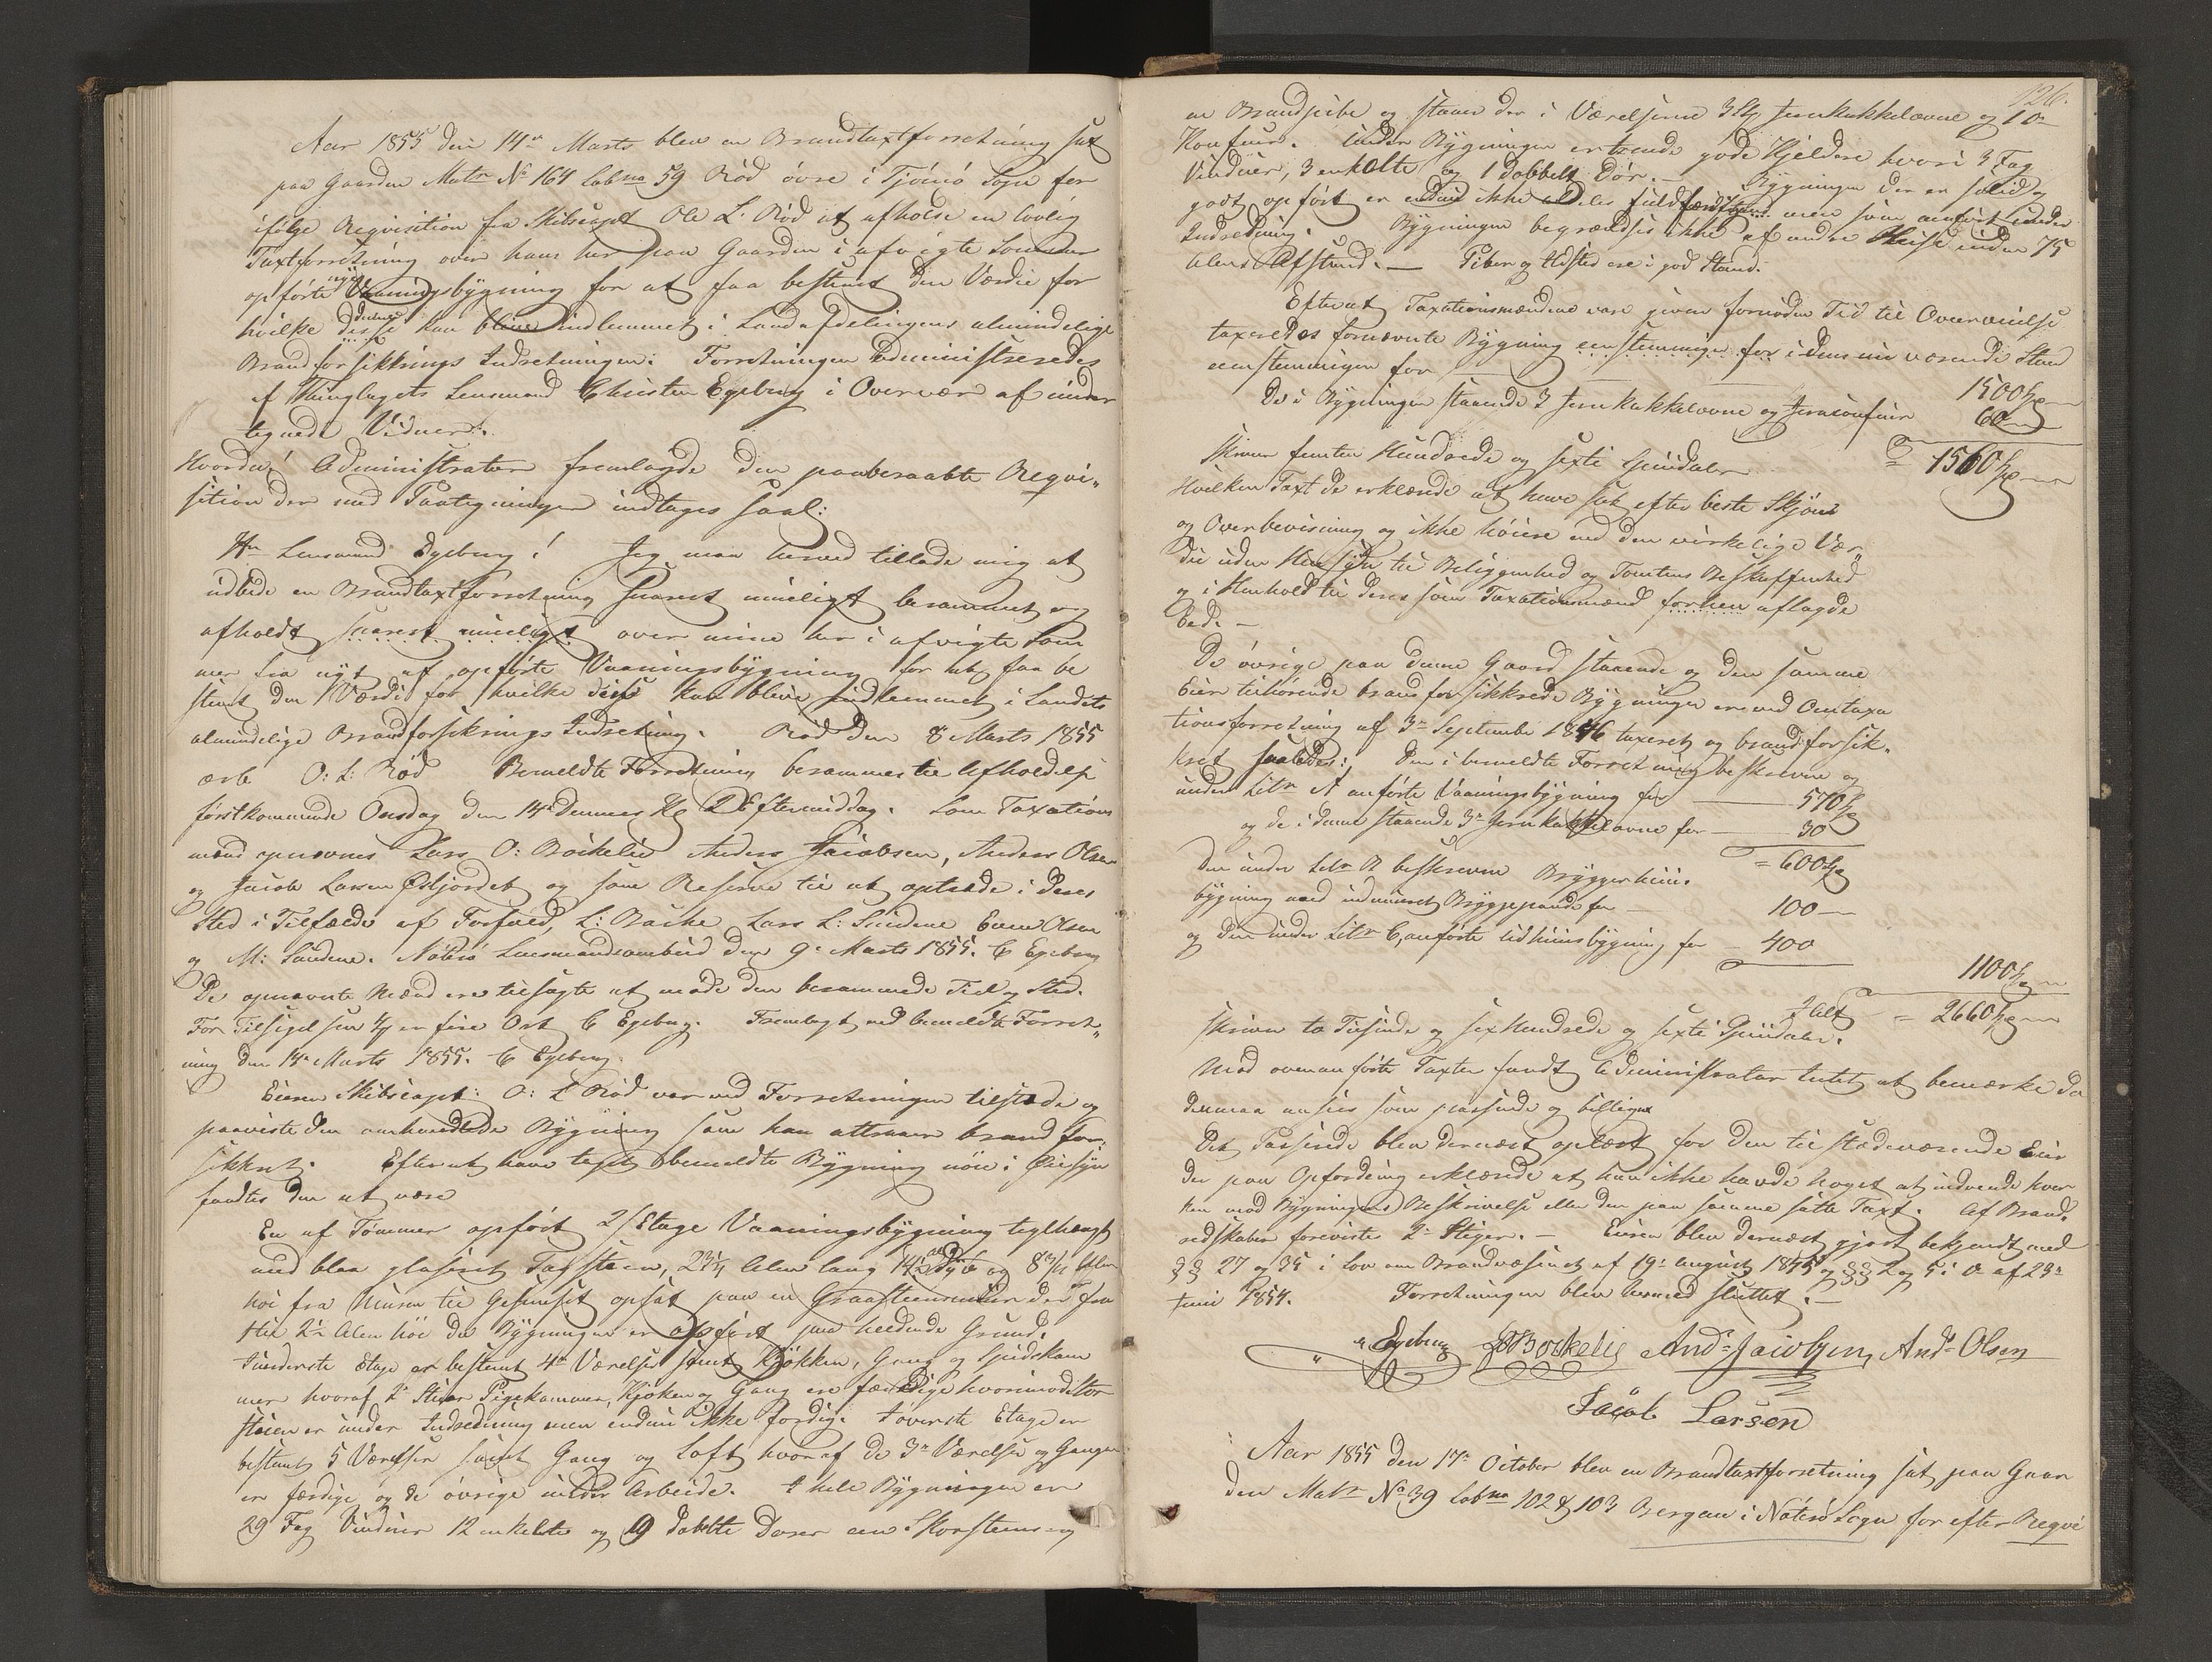 Aar 1855 den 14de Marts blev en Brandtaxtforretning sat
paa Gaarden Matr No 164 Lobno 59 Rød övre i Tjömö Sogn for
ifølge Reqvisition fra Skibscapt Ole L. Rød at afholde en lovlig
Taxtforretning over hans her paa Gaarden i afvigte Sommer
opførte nÿe Vaaningsbÿgning for at faa bestemt den Værdie for
hvilke disse kan blive indlemmet i Landafdelingens almindelige
Brandforsikkrings Indretningen. Forretningen administreredes
af Thinglagets Lensmand Christen Egeberg i Overvær af under
tegnede Vidner.
Hvorda! Administrator fremlagde den paaberaabte Reqvi„
sition der med Paategninger indtages saal:
Hr Lensmand Egeberg! Jeg maa herved tillade mig at
udbede en Brandtaxtforretning snarest mueligt berammet og
afholdt snarest mueligt over mine her i afvigte Som
mer fra nÿt af opførte Vaaningsbÿgning for at faa be
stemt den Værdi for hvilke disse kan blive indlemmet i Landets
almindelige Brandforsikrings Indretning. Rød den 8 Marts 1855
ærb O: L: Rød Bemeldte Forretning berammes til Afholdelse
førstkommende Onsdag den 14de dennes Kl 2 Eftermiddag. Som Taxations
mænd opnævnes Lars O: Böikelie Anders Jacobsen, Anders Olsen
og Jacob Larsen Østjordet og som Reserve til at optræde i deres
Sted i Tilfælde af Forfald, L: Backe Lars L: Sundene Even Olsen
og M: Sundene. Nöterö Lensmandsombud den 9de Marts 1855. C Egeberg
De opnævnte Mænd ere tilsagte at möde den berammede Tid og Sted.
For Tilsigelsen 4 er fire Ort C Egeberg. Fremlagt ved bemeldte Forret„
ning den 14de Marts 1855. C Egeberg.
Eieren Skibscapt: O: L Rød var ved Forretningen tilstede og
paaviste den omhandlede Bÿgning som han attraaer brandfor„
sikkret. Efter at have taget bemeldte Bÿgning nöie i Öiesÿn
fandtes den at være
En af Tömmer opført 2 Etage Vaaningsbÿgning teglhængt
med blaa glaseret Tagsteen, 23¼ Alen lang 14½ Al dÿb og 8¾ Alen
höi fra Muren til Gesimset opsat paa en Graasteensmuur der fra
til 2½ Alen höi da Bÿgningen er opført paa heldende Grund.
I underste Etage er bestemt 4de Værelser samt Kjökken, Gang og Spisekam
mer hvoraf 2de Stuer Pigekammer, Kjöken og Gang ere færdige hvorimod Stor
stuen er under Indredning men endnu ikke færdig. I överste Etage er
bestemt 5 Værelser samt Gang og Loft hvoraf de 3de Værelser og Gangen
er færdige og de övrige under Arbeide. I hele Bÿgningen er
29 Fag Vinduer 12 enkelte og 9 dobbte Dörer een Skorsteens og
126.
en Brandpibe og staaer der i Værelserne 3 Stk Jernkakkelovne og 1 Do
Komfuur. Under Bÿgningen er tvende gode Kjeldere hvori 3 Fag
Vinduer, 3 enkelte og 1 dobbelt Dör. – Bÿgningen der er solid og
godt opført er endnu ikke aldeles fuldfærdt men som anført under
Indredning. Bÿgningen begrændses ikke af andre Huse inden 75
Alens Afstand. — Piber og Ildsted ere i god Stand.
Efterat Taxationsmændene vare given fornöden Tid til Overveielse
taxeredes fornævnte Bÿgning eenstemmigen for i dens nu værende Stand
eenstemmigen for 1500 Spd
De i Bÿgningen staaende 3 Jernkakkelovne og Jerncomfuur 60
skriver femten Hundrede og sexti Speciedaler = 1560 Spd
Hvilken Taxt de erklærede at have sat efter beste Skjön
og Overbeviisning og ikke höiere end den virkelige Vær„
die uden Hensÿn til Beliggenhed og Tomtens Beskaffenhed
og i Henhold til deres som Taxationsmænd forhen aflagde
Eed. –
De övrige paa denne Gaard staaende og den samme
Eier tilhörende brandforsikkrede Bÿgninger ere ved Omtaxa
tionsforretning af 3de September 1846 taxeret og brandforsik„
kret saaledes: Den i bemeldte Forretning beskrevne og
under Litr A anførte Vaaningsbÿgning for — 570 Spd
og de i denne staaende 3de Jernkakkelovne for — 30
= 600 Spd
Den under Litr B beskrevne Brÿggerhuus„
bÿgning med indmuret Brÿggepande for — 100 —
og den under Litr C, anførte Udhuusbÿgning for — 400
1100 Spd
I Alt = 2660 Spd
skriver to Tusinde og sex Hundrede og sexti Speciedaler.
Mod ovenanførte Taxter fandt Administrator Intet at bemærke da
denmaa ansees som passende og billigen
Det Passerede blev dernæst oplæst for den tilstedeværende Eier
der paa Opfordring erklærede at han ikke havde noget at indvende hver
ken mod Bÿgningens Beskrivelse eller den paa samme satte Taxt. Af Brand„
redskaber foreviste 2de Stiger. – Eieren blev dernæst gjort bekjendt med
§§ 27 og 35 i Lov om Brandvæsenet af 19de August 1845 og §§ 2 og 5 i Do af 23de
Juni 1854. Forretningen blev hermed sluttet. –
C Egeberg LOBoikelie Ands Jacobsen, Ands Olsen
Jacob Larsen
Aar 1855 den 17de October blev en Brandtaxtforretning sat paa Gaar
den Matr No 39 Lobno 102 & 103 Bergan i Nöterö Sogn for efter Reqvi